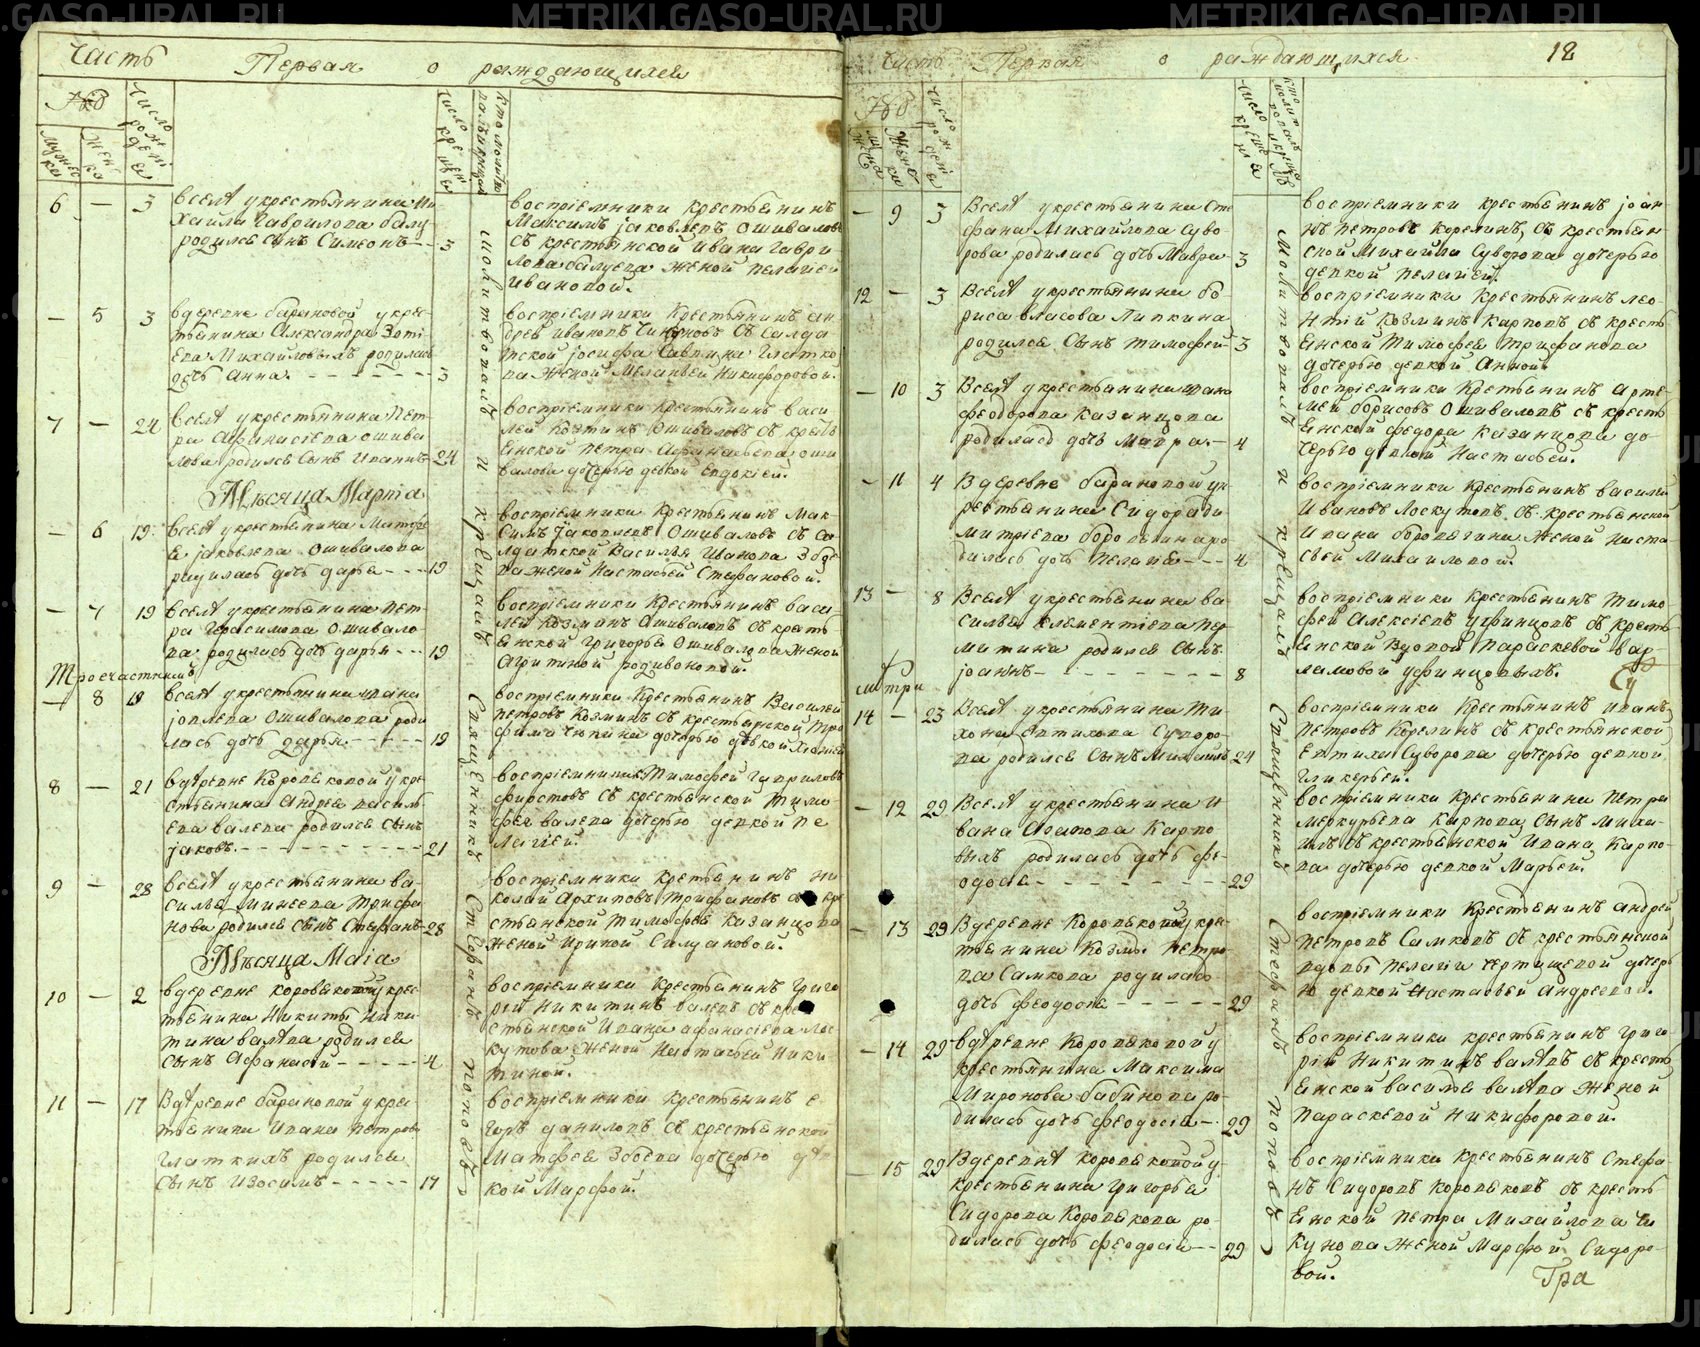 METRIKI.GASO-URAL.RU
METRIKI.GASO-URAL.RU
Часть Первая о раждающихся
№
мужеска
женска
число рожденія
число крещенія
6 — 3 Вселѣ укрестьянина Ми
хайла Гаврилова балу
родился сынъ Симеонъ — 3
воспріемники крестьянинъ
Максимъ Іаковлевъ Ошиваловъ
съ крестьянской Ивана Гаври
лова балуева женой Пелагіеи
Ивановой.
— 5 3 вдеревне барановой укрес
тьянина Александра Зоти
ева Михайловыхъ родилась
дочь Анна. — 3
воспріемники крестьянинъ Ан
дрей Ивановъ съ Салда
тской Іосифа Саввина Глатко
ва женой Меланьей Никифоровой.
7 — 24 вселѣ укрестьянина Пет
ра Афанасіева Ошива
лова родился сынъ Иванъ — 24
воспріемники крестьянинъ Васи
лей Козминъ Ошиваловъ съ кресть
янской Петра Афанасьева Оши
валова дочерью девкой Евдокіей.
Мѣсяца Марта
— 6 19 вселѣ укрестьянина Матфе
я Іаковлева Ошивалова
родилась дочь Дарья — 19
воспріемники крестьянинъ Мак
симъ Іаковлевъ Ошиваловъ съ со
лдатской Василья Иванова Збое
ва женой Настасьей Стефановой.
— 7 19 вселѣ укрестьянина Пет
ра Герасимова Ошивало
ва родилась дочь Дарья — 19
воспріемники крестьянинъ Васи
лей Козминъ Ошиваловъ съ кресть
янской Григорья Ошивалова женой
Агрипиной Родивоновой.
— 8 19 вселѣ укрестьянина Ивана
Іовлева Ошивалова роди
лась дочь Дарья — 19
воспріемники крестьянинъ Василеи
Петровъ Козминъ съ крестьянской Тро
фима дочерью девкой
8 — 21 вдѣревне Коровяковой укре
стьянина Андрея василь
ева валева родился сынъ
Іаковъ. — 21
воспріемникъ Тимофей Гавриловъ
съ крестьянской Тимо
фея валева дочерью девкой Пе
лагіей.
9 — 28 вселѣ укрестьянина Ва
силья Минеева Трифа
нова родился сынъ Стефанъ — 28
воспріемники крестьянинъ Ни
колай Архиповъ Трифановъ съ кре
стьянской Тимофея Казанцова
женой Ириной Салдановой.
Мѣсяца Маіа
10 — 2 вдеревне коровяковой укрес
тьянина Никиты Ники
тина валѣва родился
сынъ Афанасій — 4
воспріемники крестьянинъ Григо
рій Никитинъ валевъ съ кре
стьянской Ивана Афанасіева Лос
кутова женой Настасьей Ники
тиной.
11 — 17 Вдѣревне барановой укрес
тьянина Ивана Петрова
Глаткихъ родился
сынъ Изосимъ — 17
воспріемники крестьянинъ Е
горъ Даниловъ съ крестьянской
Матфея Збоева дочерью дев
кой Марфой.
Молитвовалъ и крещалъ Священникъ Стефанъ Поповъ
Часть Первая о раждающихся 12
№
число рожденія
число крещенія
— 9 3 Вселѣ укрестьянина Сте
фана Михайлова Суво
рова родилась дочь Мавра — 3
воспріемники крестьянинъ Іоан
нъ Петровъ Корелинъ, съ крестьян
ской Михайла Суворова дочерью
девкой Пелагіей.
12 — 3 Вселѣ укрестьянина Бо
риса Власова Липкина
родился сынъ Тимофей — 3
воспріемники крестьянинъ Лео
нтій Козминъ Карповъ съ кресть
янской Тимофея Трифанова
дочерью девкой Анной.
— 10 3 Вселѣ укрестьянина Ивана
Феодорова Казанцова
родилась дочь Мавра. — 4
воспріемники крестьянинъ Арте
мей Борисовъ Ошиваловъ съ кресть
янской Федора Казанцова до
черью девкой Настасьей.
— 11 4 Вдеревне барановой ук
рестьянина Сидора Ди
митріева бородягина ро
дилась дочь Пелагія — 4
воспріемники крестьянинъ василей
Ивановъ Лоскутовъ съ крестьянской
Ивана бородягина женой Наста
сьей Михаиловой.
13 — 8 Вселѣ укрестьянина Ва
силья Клементіева Пер
митина родился сынъ
Іоаннъ — 8
воспріемники крестьянинъ Тимо
фей Алексіевъ Уфинцовъ съ кресть
янской вдовой Параскевой Вар
ламовой Уфинцовыхъ.
14 — 23 Вселѣ укрестьянина Ти
хона Суворо
ва родился сынъ Михаилъ 24
воспріемники крестьянинъ Иванъ
Петровъ Корелинъ съ крестьянской
Суворова дочерью девкой
Гликерьей.
— 12 29 Вселѣ укрестьянина И
вана Агапова Карпо
выхъ родилась дочь Фе
одосья — 29
воспріемники крестьянина Петра
Меркурьева Карпова сынъ Миха
илъ съ крестьянской Ивана Карпо
ва дочерью девкой Марьей.
— 13 29 Вдеревне Коровяковой укре
тьянина Козмы Петро
ва Самкова родилась
дочь Феодосья — 29
воспріемники крестьянинъ Андрей
Петровъ Самковъ съ крестьянской
вдовы Пелагіи Чертищевой дочерь
ю девкой Настасьей Андреевой.
— 14 29 вдѣревне Коровяковой у
крестьянина Максима
Миронова бабинова ро
дилась дочь Феодосія — 29
воспріемники крестьянинъ Григо
рій Никитинъ валѣвъ съ кресть
янской василья валѣва женой
Параскевой Никифоровой.
— 15 29 Вдеревнѣ Коровяковой у
крестьянина Григорья
Сидорова Коровякова ро
дилась дочь Феодосія — 29
воспріемники крестьянинъ Стефа
нъ Сидоровъ Коровяковъ съ кресть
янской Петра Михайлова Чи
кунова женой Марфой Сидоро
вой.
Гра
Молитвовалъ и крещалъ Священникъ Стефанъ Поповъ